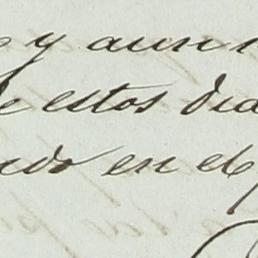 y aun
de estos dia
ndo en el